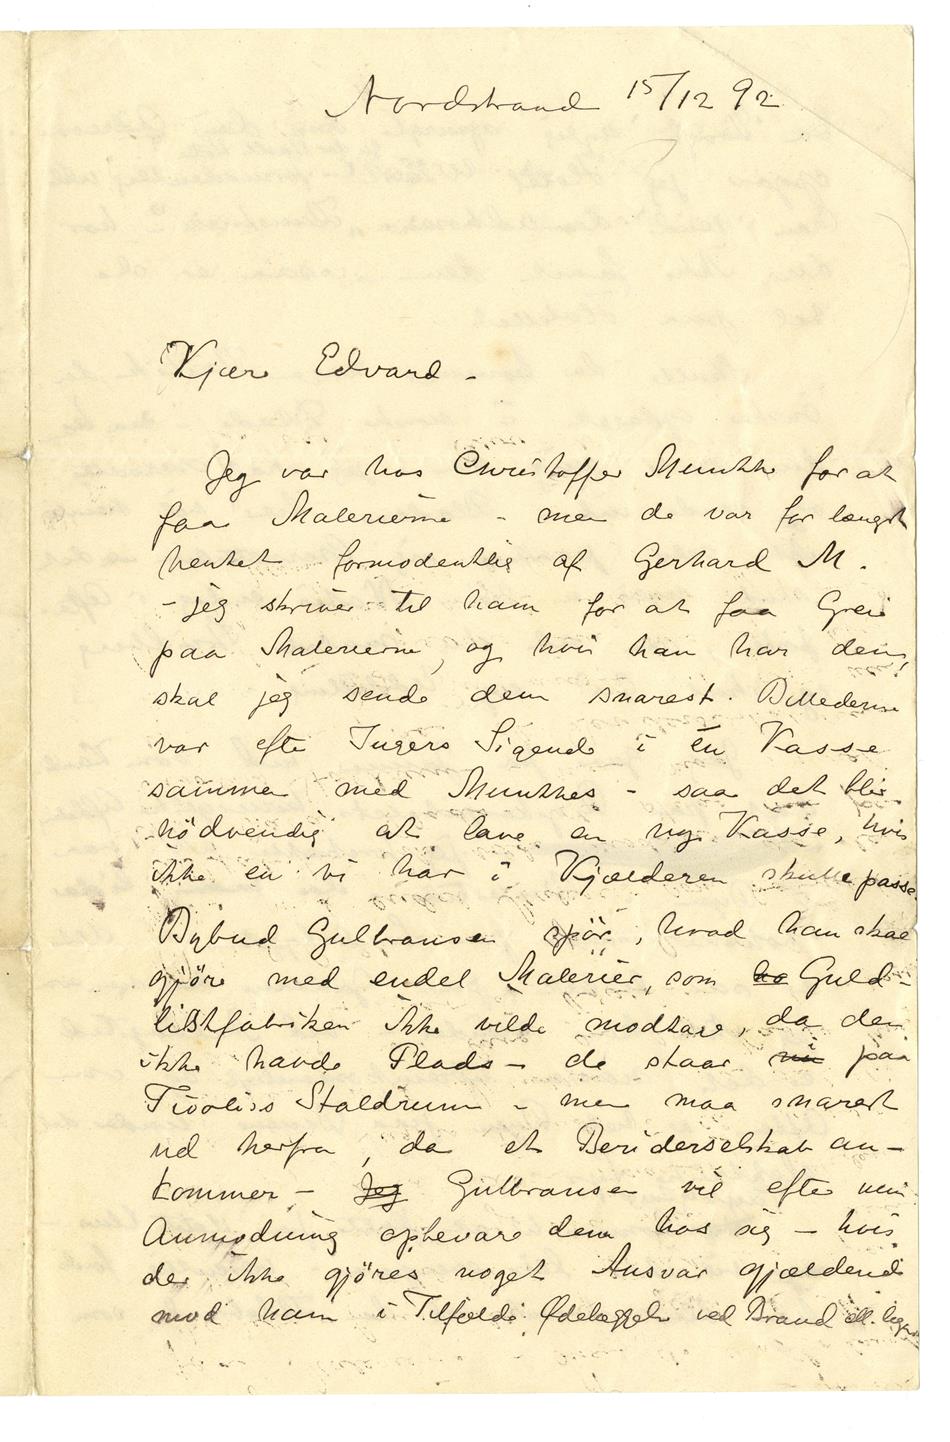 Nordstrand 15/12 92
Kjære Edvard –
Jeg var hos Christoffer Munthe for at
faa Malerierne – men de var for længst
hentet formodentlig af Gerhard M.
– jeg skriver til ham for at faa Grei
paa Malerierne, og hvis han har dem,
skal jeg sende dem snarest. Billederne
var efter Ingers Sigende i én Kasse
sammen med Munthes – saa det blir
nödvendig at lave en ny Kasse, hvis
ikke en vi har i Kjælderen skulle passe.
Bybud Gulbransen spör, hvad han skal
gjöre med endel Malerier, som ha Guld-
listfabriken ikke vilde modtage, da den
ikke havde Plads – de staar nu paa
Tivolis Staldrum – men maa snarest
ud herfra, da et Beriderselskab an-
kommer – Jeg Gulbransen vil efter min
Anmodning opbevare dem hos sig – hvis
der ikke gjöres noget Ansvar gjældende
mod ham i Tilfælde Ødelæggelse ved Brand ell. lign.